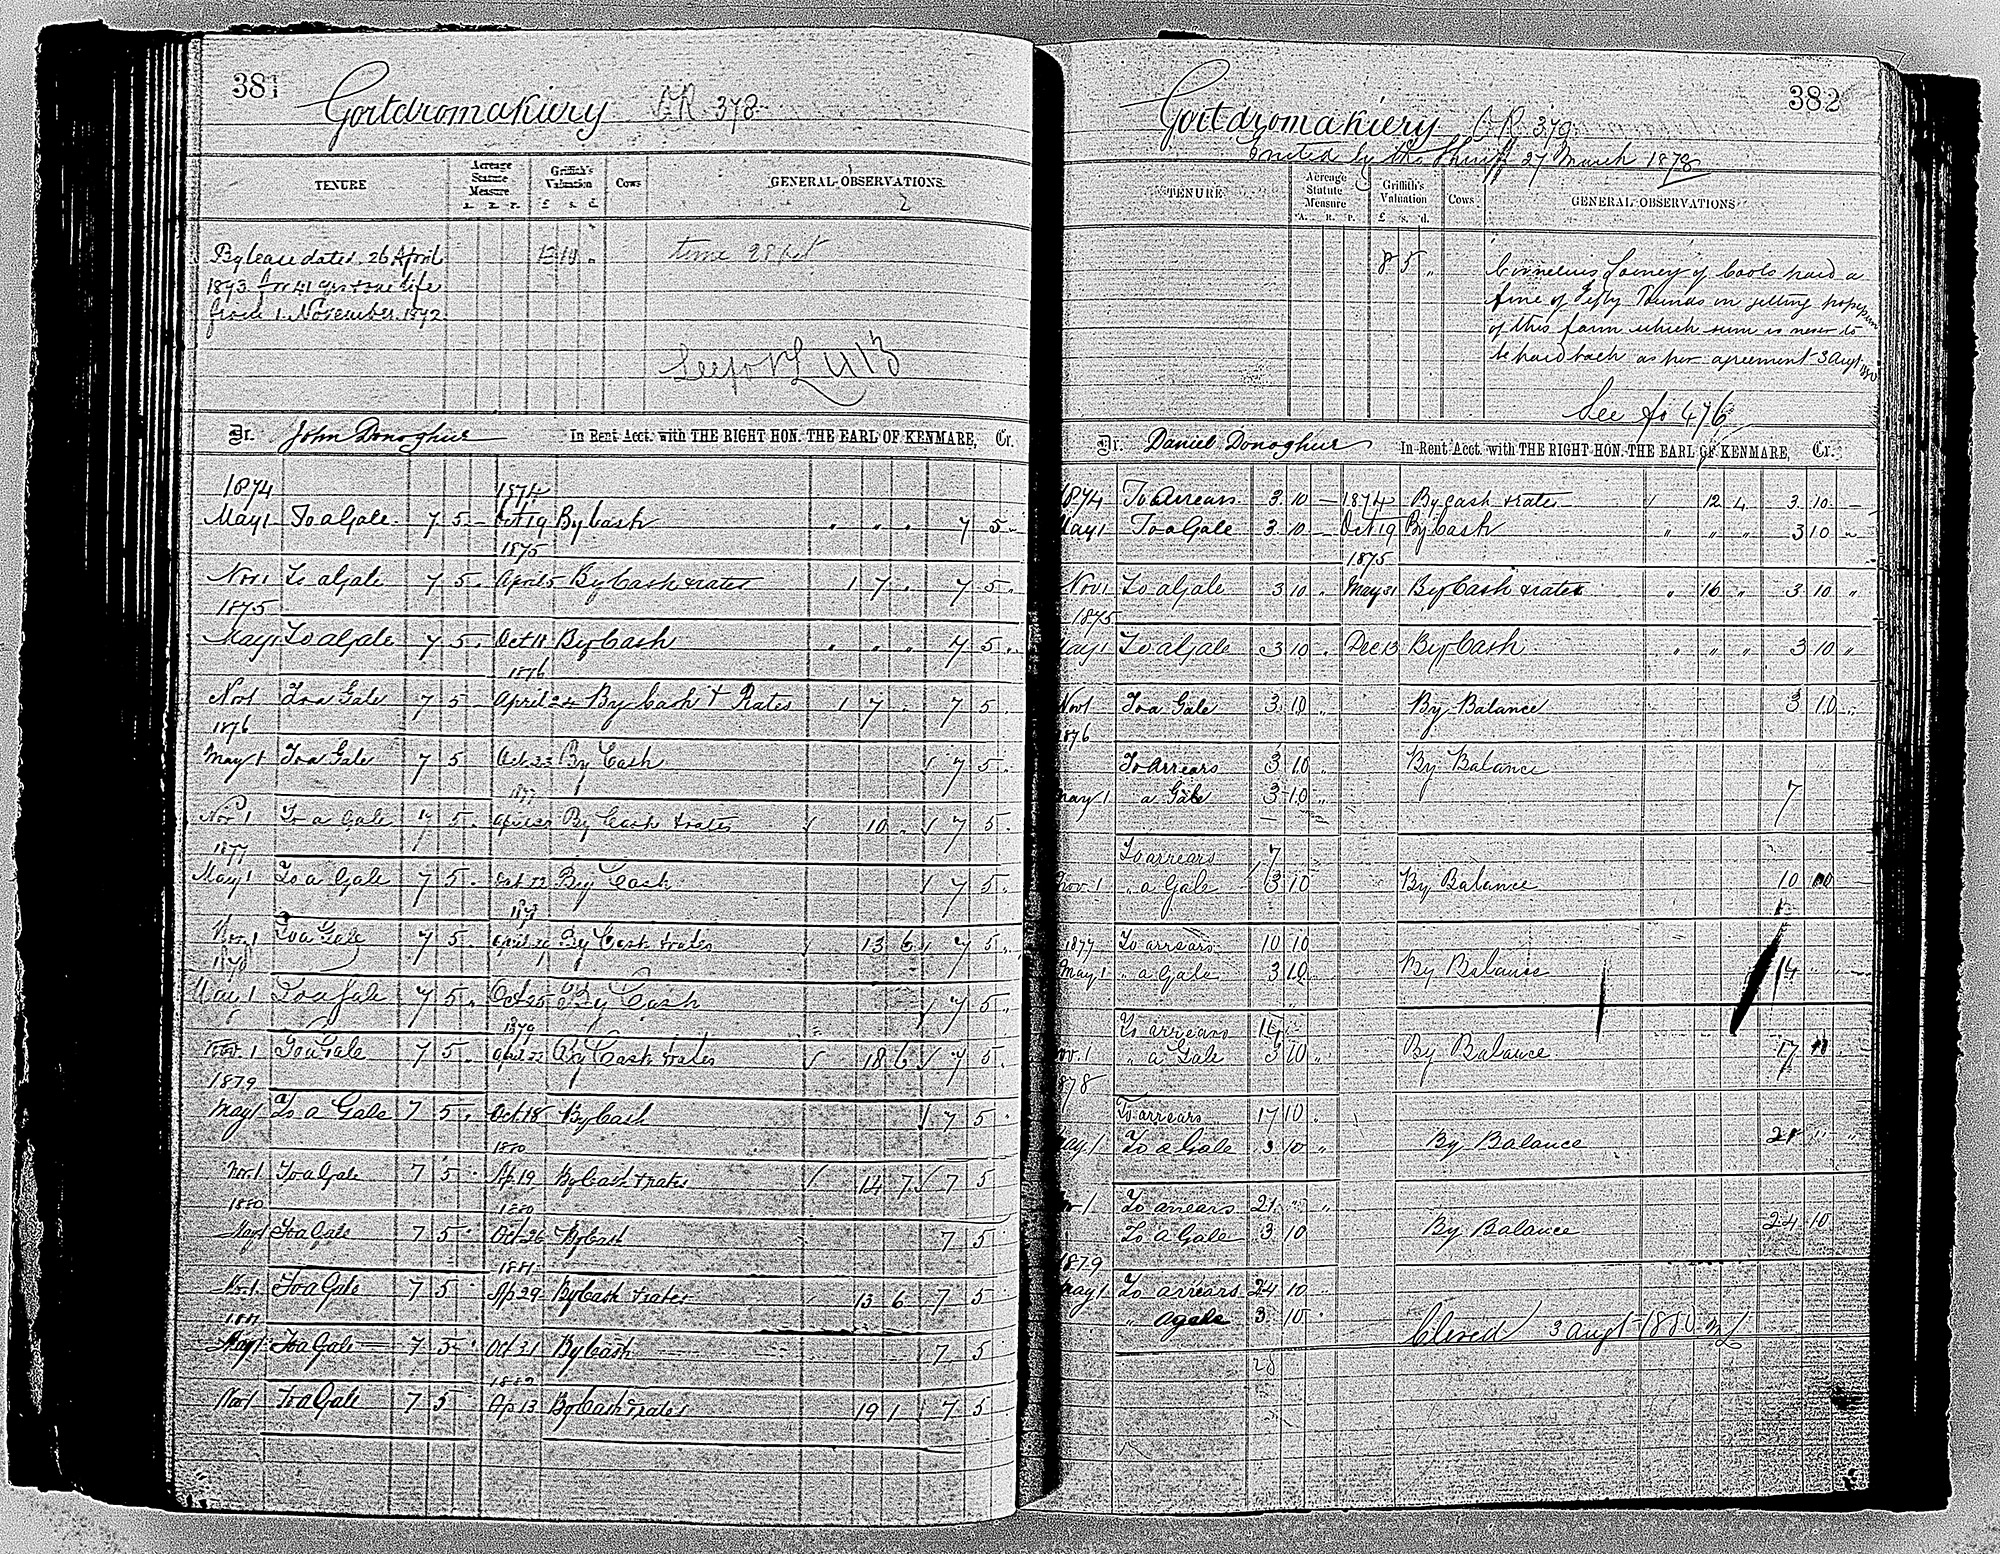 381
Gortdromakiery O.R. 378
TENURE
Acreage Statute Measure
A. R. P.
Griffith's Valuation
£ s. d.
Cows
GENERAL OBSERVATIONS
By lease dated 26 April
1873 for 41 yrs + one life
from 1 November 1872
time 28
See for
Dr. John Donoghue In Rent Acct. with THE RIGHT HON. THE EARL OF KENMARE, Cr.
1874 1874
May 1 To a Gale 7 5 - Oct 19 By Cash " " " 7 5 -
1875
Nov 1 To a Gale 7 5 . April 5 By Cash & rates 1 7 . 7 5 .
1875
May 1 To a Gale 7 5 . Oct 11 By Cash " " " 7 5 .
1876
Nov 1 To a Gale 7 5 - April 24 By Cash + Rates 1 7 . 7 5 .
1876
May 1 To a Gale 7 5 Oct 23 By Cash 7 5 .
1877
Nov 1 To a Gale 7 5 . April By Cash & rates 10 . 7 5 .
1877
May 1 To a Gale 7 5 . By Cash 7 5 .
1878
Nov. 1 To a Gale 7 5 . April By Cash & rates 13 6 7 5 .
1878
May 1 To a Gale 7 5 . Oct 25 By Cash 7 5 .
1879
Nov. 1 To a Gale 7 5 . April 22 By Cash & rates 18 6 7 5 .
1879
May 1 To a Gale 7 5 . Oct 18 By Cash 7 5 .
1880
Nov. 1 To a Gale 7 5 . Ap 19 By Cash & rates 14 7 7 5
1880 1880
May 1 To a Gale 7 5 . Oct 26 By Cash 7 5
1881
Nov. 1 To a Gale 7 5 Ap 29 By Cash & rates 13 6 7 5
1881
May 1 To a Gale 7 5 . Oct 21 By Cash 7 5
1882
Nov 1 To a Gale 7 5 Ap 13 By Cash & rates 19 1 7 5
382
Gortdromakiery O.R. 379
Evicted by the Sheriff 27 March 1878
TENURE
Acreage Statute Measure
A. R. P.
Griffith's Valuation
£ s. d.
Cows
GENERAL OBSERVATIONS
8 5 "
Cornelius of Cools paid a
fine of Fifty Pounds on getting
of this farm which sum is never to
be paid back as per agreement 3 Augt
See fo 476
Dr. Daniel Donoghue In Rent Acct. with THE RIGHT HON. THE EARL OF KENMARE, Cr.
1874 To Arrears 3 10 - 1874 By cash & rates 12 4 3 10 -
May 1 To a Gale 3 10 - Oct 19 By Cash " " " 3 10 "
1875
Nov 1 To a Gale 3 10 . May 31 By Cash & rates " 16 " 3 10 "
1875
May 1 To a Gale 3 10 . Dec 13 By Cash " " " 3 10 "
Nov 1 To a Gale 3 10 " By Balance 3 10 "
1876
To Arrears 3 10 " By Balance
May 1 a Gale 3 10 " 7
To arrears 7
Nov. 1 a Gale 3 10 By Balance 10 10
1877 To arrears 10 10
May 1 " a Gale 3 10 By Balance 14
To arrears 14
Nov. 1 " a Gale 3 10 " By Balance 17 10
1878
To arrears 17 10 "
May 1 To a Gale 3 10 " By Balance 21 " "
Nov 1 To arrears 21 " "
To a Gale 3 10 By Balance 24 10
1879
May 1 To arrears 24 10
" a gale 3 10 . Closed 3 augt 1880
28